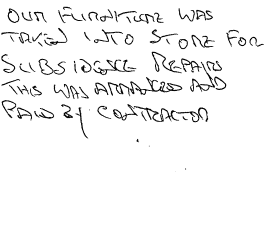 OUR FURNITURE WAS
TAKEN INTO STORE FOR
SUBSIDENCE REPAIRS
THIS WAS ARRANGED AND
PAID BY CONTRACTOR